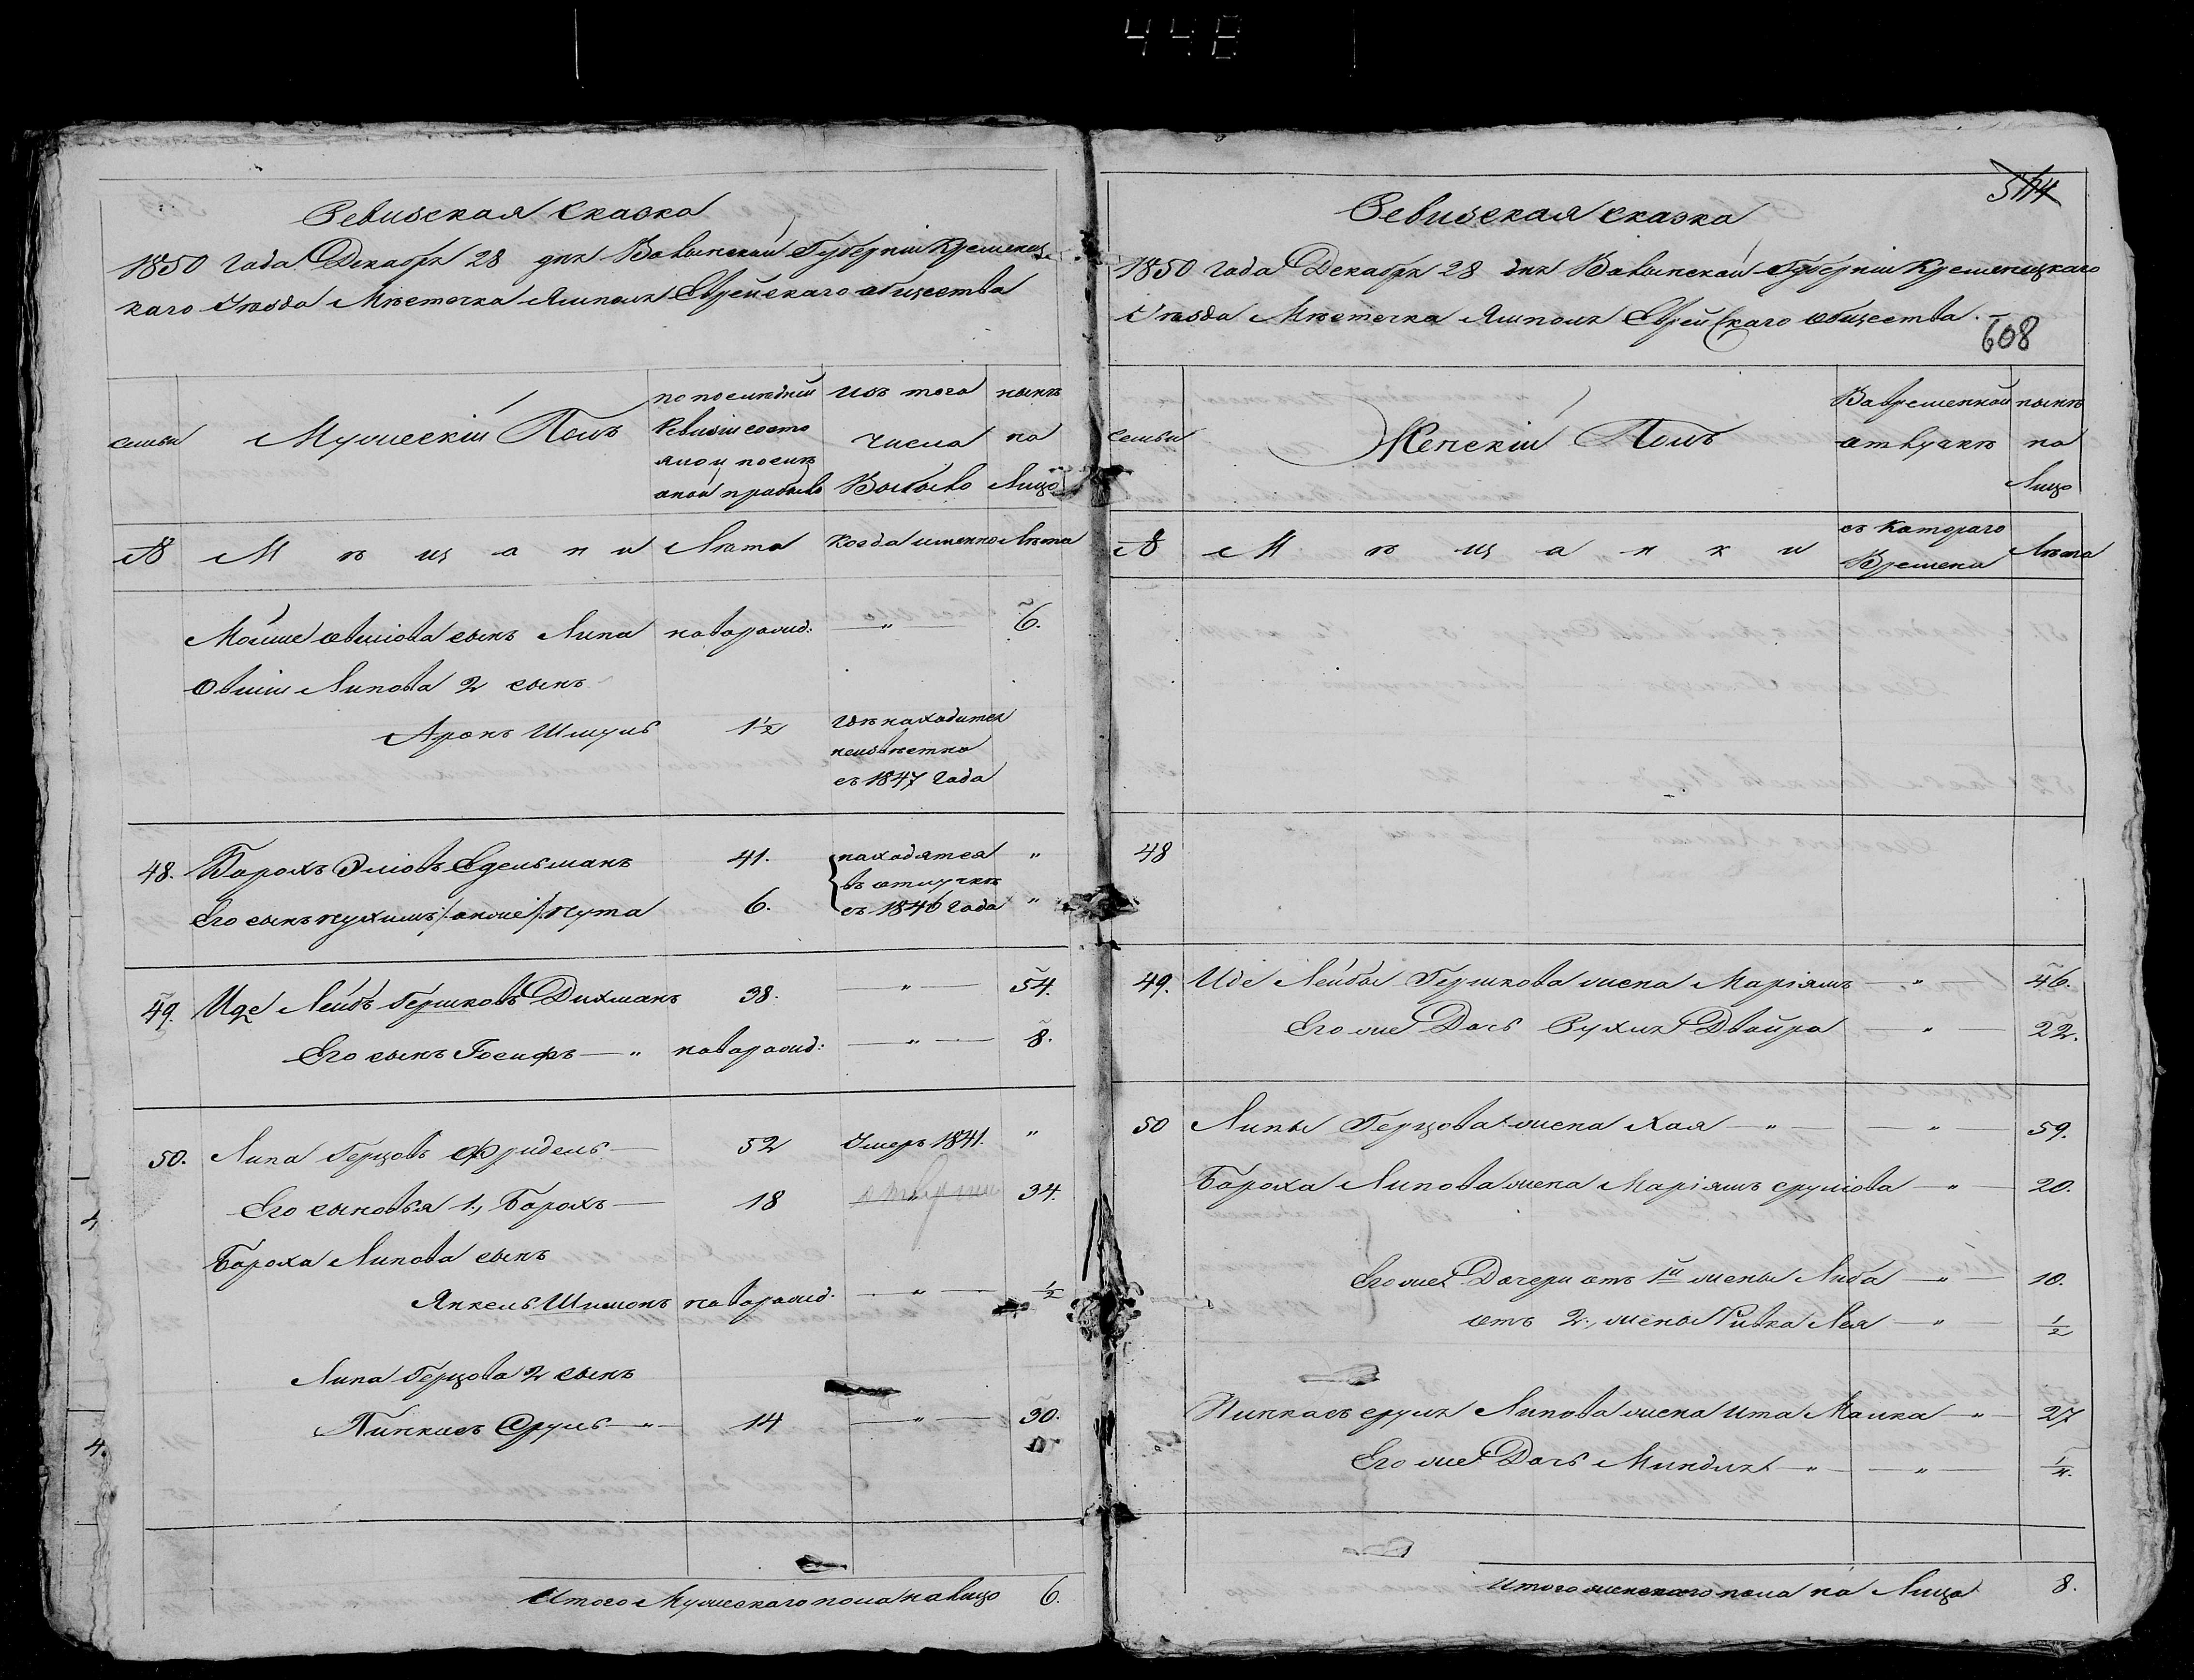 448
Ревизская Сказка
1850 года Декабря 28 дня Волынской Губернiи Кременец
каго Уезда Мѣстечка Ямполя Еврейскаго общества
семьи
Мужескiй Полъ
по последнiй
Ревизiи состо
яло и после
оной прибыло
изъ того
числа
Выбыло
нынѣ
на
Лицо
№
М ѣ щ а н и
Лѣта
Когда именно
Лѣта
Мошие овшiова сынъ Липа новорожд: — „ — 6.
Овшiи Липова 2 сынъ
Аронъ Шмуль 1½ гдѣ находится
неизвѣстно
съ 1847 года
48. Борохъ Элiовъ Едельманъ 41. находятся „
въ отлучкѣ
Его сынъ Нухимъ /: онже :/ Нута 6. съ 1846 года „
49. Иде Лейбъ Гершковъ Дихманъ 38. — „ — 54.
Его сынъ Iосифъ — „ новорожд: — „ — 8.
50. Липа Герцовъ Фридель — 52 Умеръ 1841. „
Его сыновья 1., Борохъ — 18 34.
Бороха Липова сынъ
Янкель Шимонъ новорожд. — „ — ½
Липа Герцова 2 сынъ
Пинкасъ Сруль — „ — 14 — „ — 30.
Итого Мужескаго пола на лицо 6.
4
4.
514
Ревизская сказка
1850 года Декабря 28 дня Волынской Губернiи Кременецкаго
Уезда Мѣстечка Ямполя Еврейскаго общества. —
608
семьи
Женскiй Полъ
Вовременной
отлучкѣ
нынѣ
на
Лицо
№
М ѣ щ а н к и
съ котораго
Времени
Лѣта
48
49. Иде Лейбы Гершкова жена Марiямъ — „ — 46.
Его же Дочь Рухля Двойра — „ — 22.
50 Липы Герцова жена Хая — „ — „ — 59.
Бороха Липова жена Марiямъ срулiова — „ — 20.
Его же Дочери отъ 1й жены Либа — „ — 10.
отъ 2., жены Ривка Лея — „ — ½
Пинкасъ сруля Липова жена Ита Малка — „ — 27
Его же Дочь Миндля — „ — „ — ¼.
Итого женскаго пола на Лицо 8.